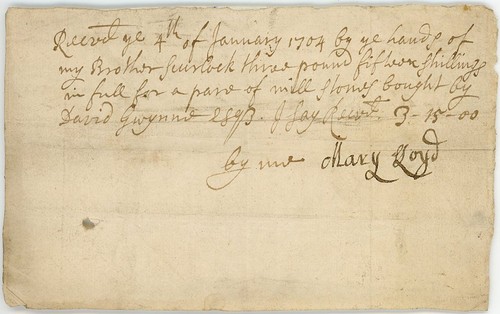 Recev.d ye 4th of January 1704 by ye hands of
my Brother Scurlock three pound fifteen shillings
in full for a pare of mill stones bought by
David Gwynne I say Recev.d 3-15-00
by me Mary Loyd